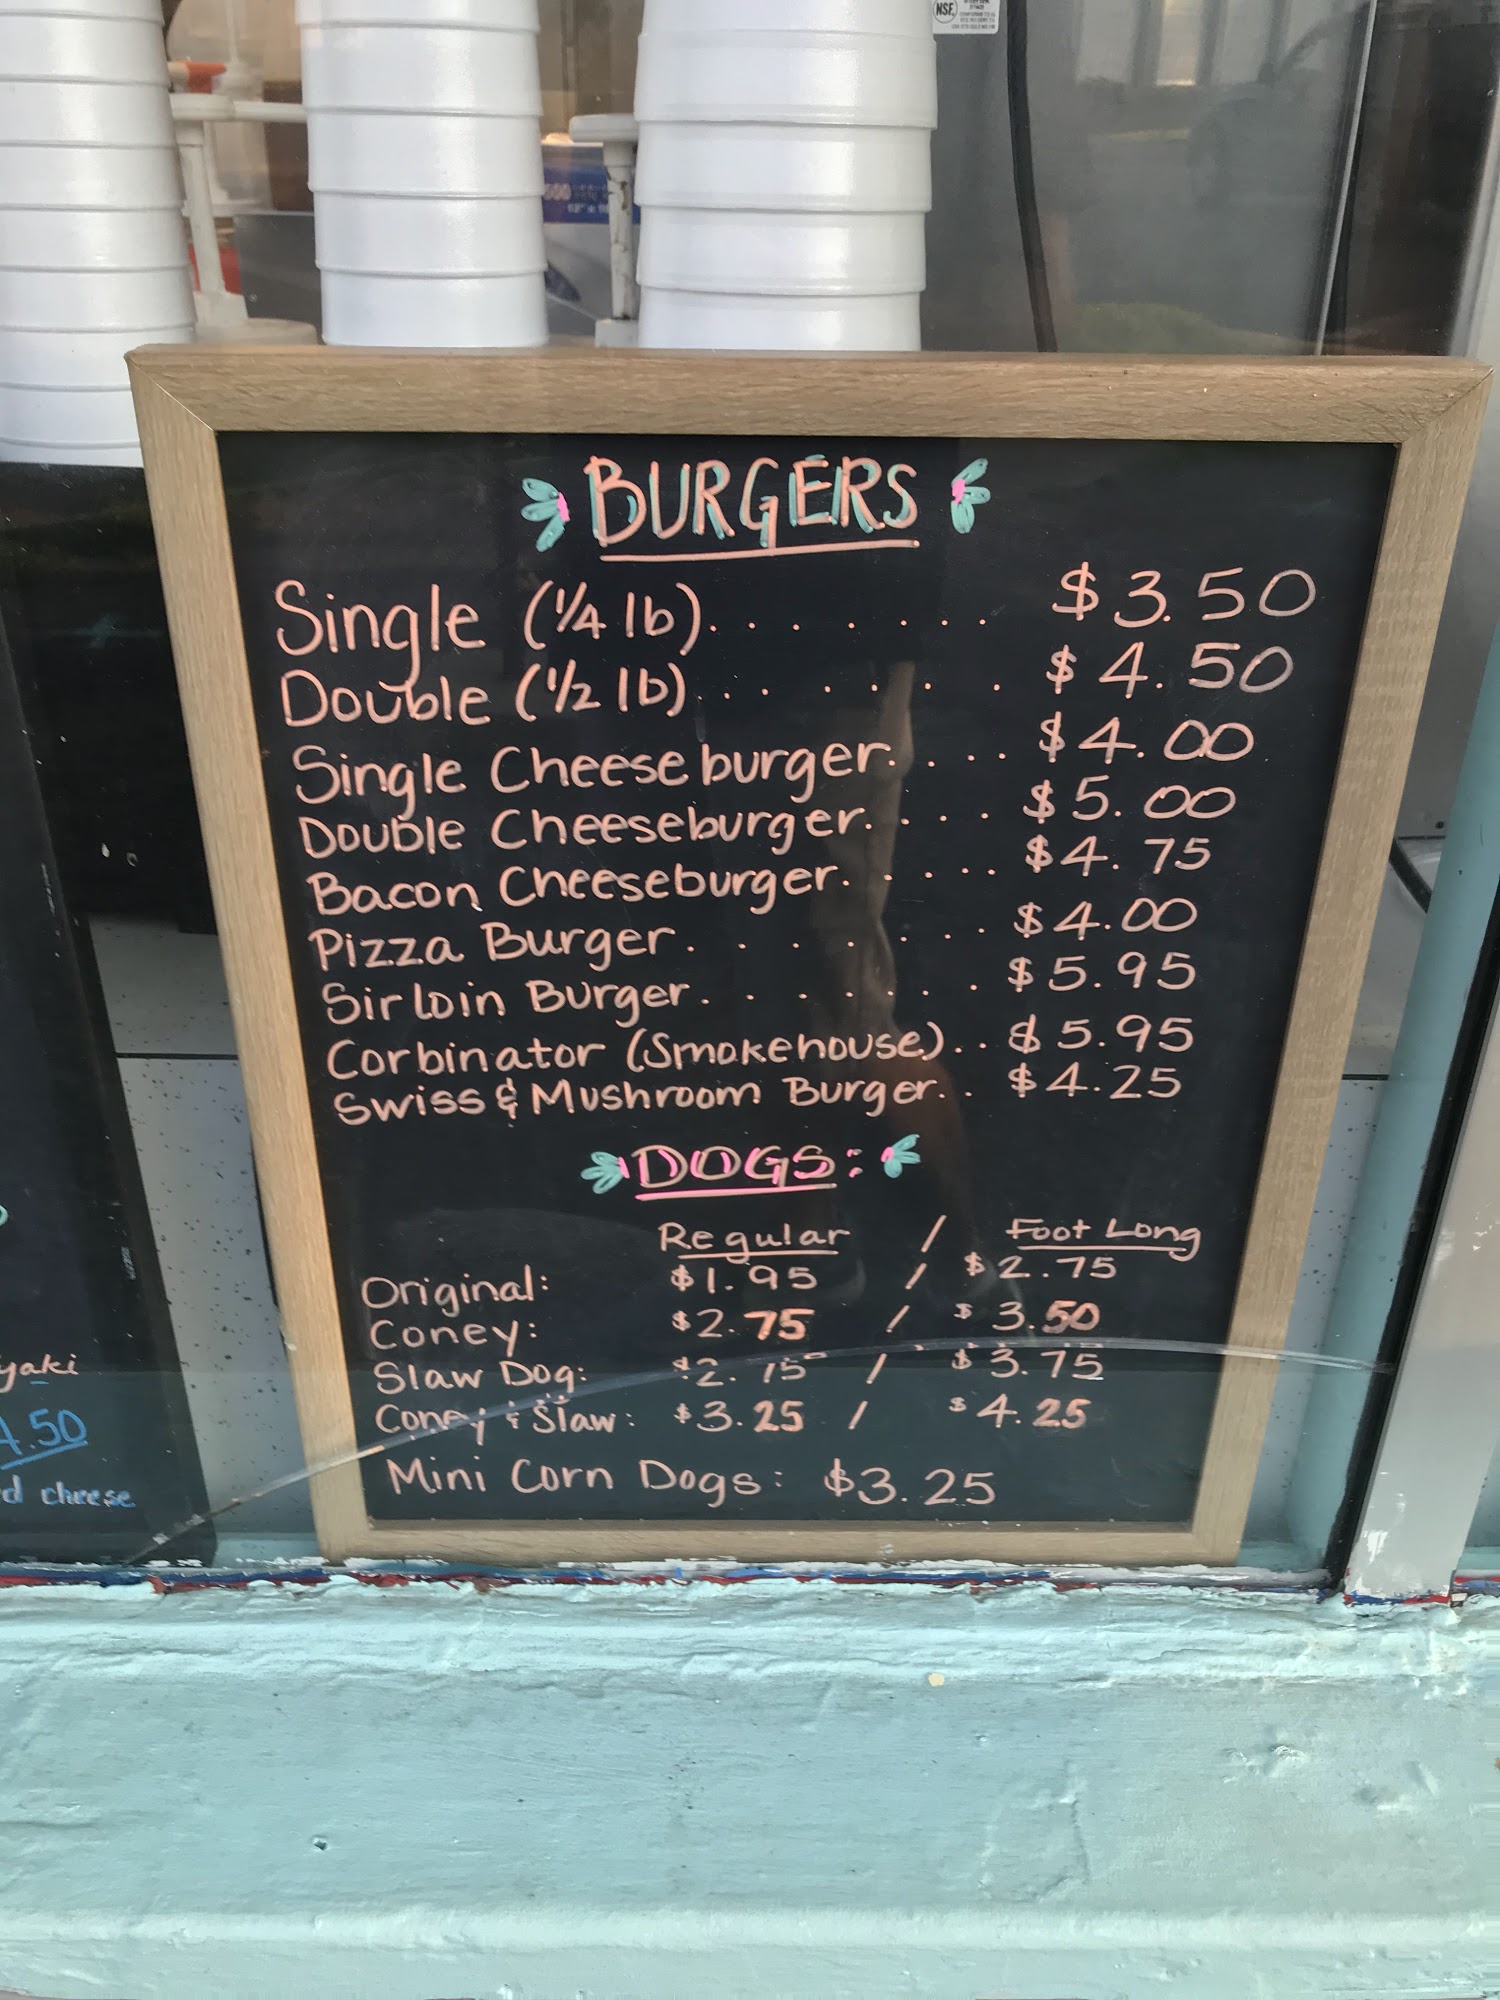 NSF
BURGERS
Single (1/4 lb)........ $3.50
Double (1/2 lb)........ $4.50
Single Cheeseburger..... $4.00
Double Cheeseburger..... $5.00
Bacon Cheeseburger...... $4.75
Pizza Burger........ $4.00
Sirloin Burger....... $5.95
Corbinator (Smokehouse).. $5.95
Swiss & Mushroom Burger.. $4.25
DOGS:
Regular / Foot Long
Original: $1.95 / $2.75
Coney: $2.75 / $3.50
Slaw Dog: $2.75 / $3.75
Coney & Slaw: $3.25 / $4.25
Mini Corn Dogs: $3.25
yaki
4.50
d cheese